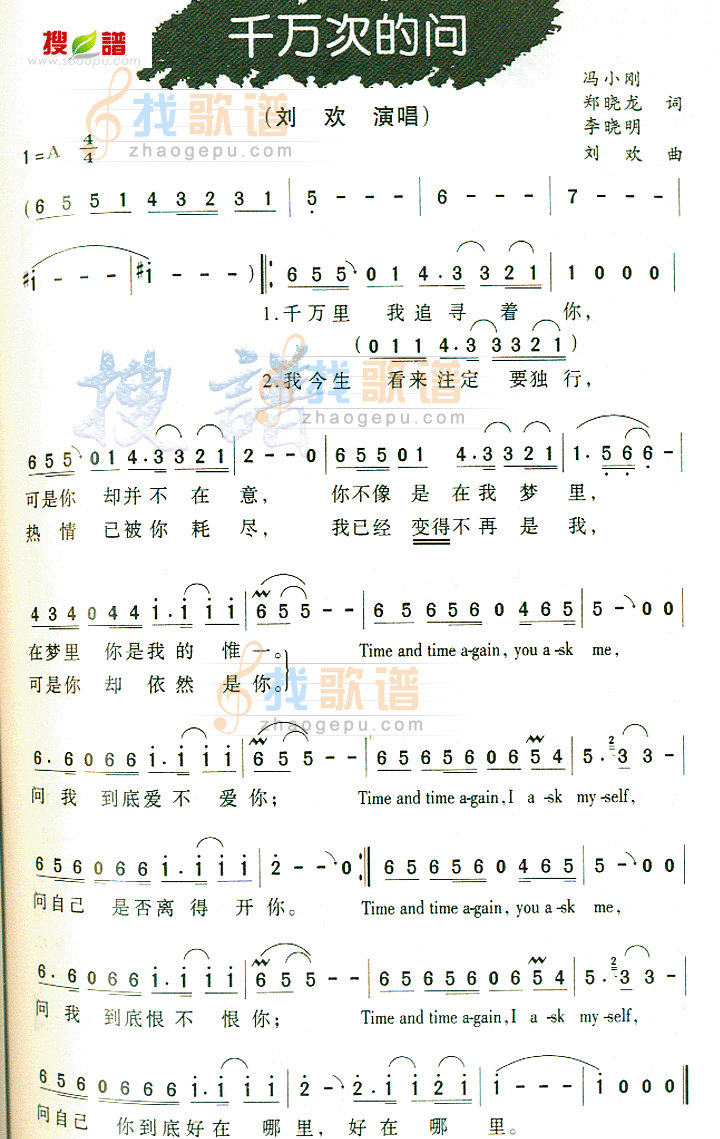 搜谱
www.sooopu.com
千万次的问
冯小刚
郑晓龙 词
(刘 欢 演唱)
李晓明
刘 欢 曲
找歌谱
zhaogepu.com
1=A 4/4
(6 5 5 1 4 3 2 3 1 | 5 - - - | 6 - - - | 7 - - - |
#i - - - | #i - - - ) |: 6 5 5 0 1 4. 3 3 3 2 1 | 1 0 0 0 |
1.千万里 我追寻着你,
(0 1 1 4. 3 3 3 2 1)
2.我今生 看来注定 要独行,
搜譜
找歌谱
zhaogepu.com
6 5 5 0 1 4. 3 3 3 2 1 | 2 - - 0 | 6 5 5 0 1 4. 3 3 3 2 1 | 1. 5 6 6 - |
可是你 却并不在意, 你不像是在我梦里,
热情 已被你耗尽, 我已经变得不再是我,
4 3 4 0 4 4 i. i i i i | 6 5 5 - - | 6 5 6 5 6 0 4 6 5 | 5 - 0 0 |
在梦里 你是我的惟一。 Time and time a-gain, you a-sk me,
可是你 却依然是你。
找歌谱
zhaogepu.com
6. 6 0 6 6 i. i i i i | 6 5 5 - - | 6 5 6 5 6 0 6 5 4 | 5. 2 3 3 - |
问我 到底爱不爱你; Time and time a-gain, I a-sk my-self,
6 5 6 0 6 6 i. i i i i | 2 - - 0 :| 6 5 6 5 6 0 4 6 5 | 5 - 0 0 |
问自己 是否离得开你。 Time and time a-gain, you a-sk me,
6. 6 0 6 6 i. i i i i | 6 5 5 - - | 6 5 6 5 6 0 6 5 4 | 5. 2 3 3 - |
问我 到底恨不恨你; Time and time a-gain, I a-sk my-self,
6 5 6 0 6 6 6 i. i i i | 2 - 2. i i 2 i | i - - - | i 0 0 0 ‖
问自己 你到底好在哪里, 好在哪里。